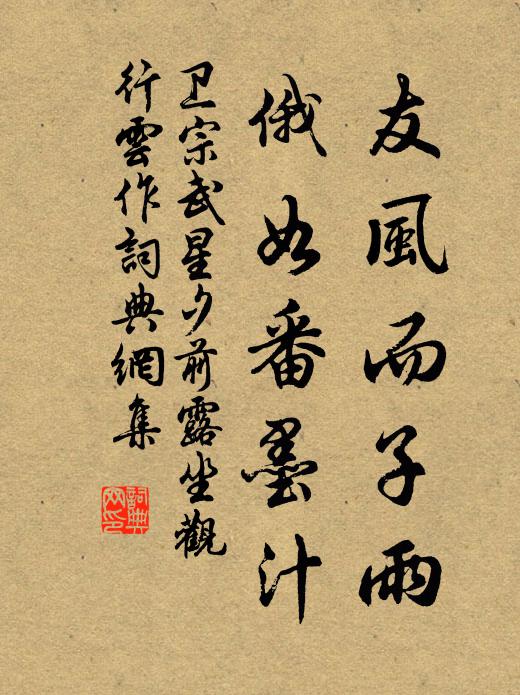 友風而子雨
俄如番墨汁
卫宗武星夕前露坐觀
行雲作詞典網集
詞典
网印